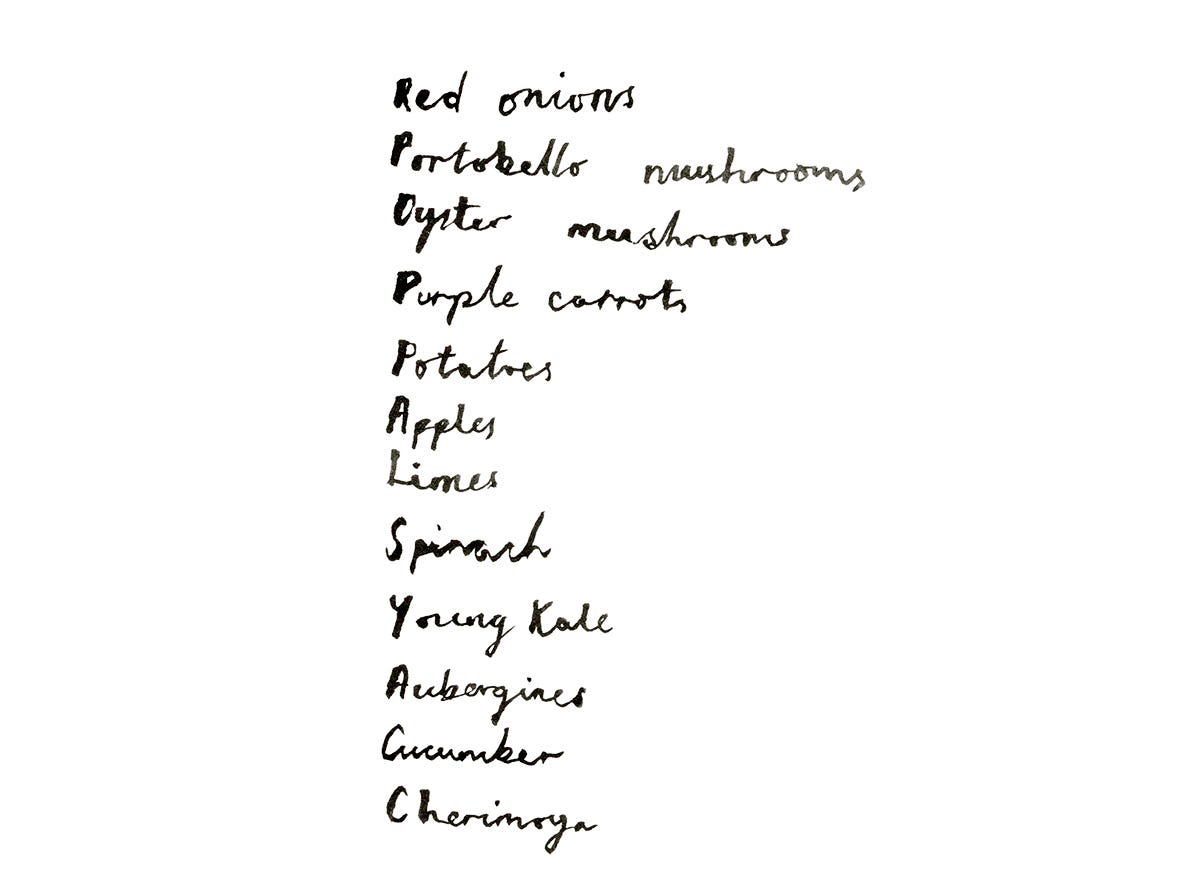 Red onions
Portobello mushrooms
Oyster mushrooms
Purple carrots
Potatoes
Apples
Limes
Spinach
Young Kale
Aubergines
Cucumber
Cherimoya